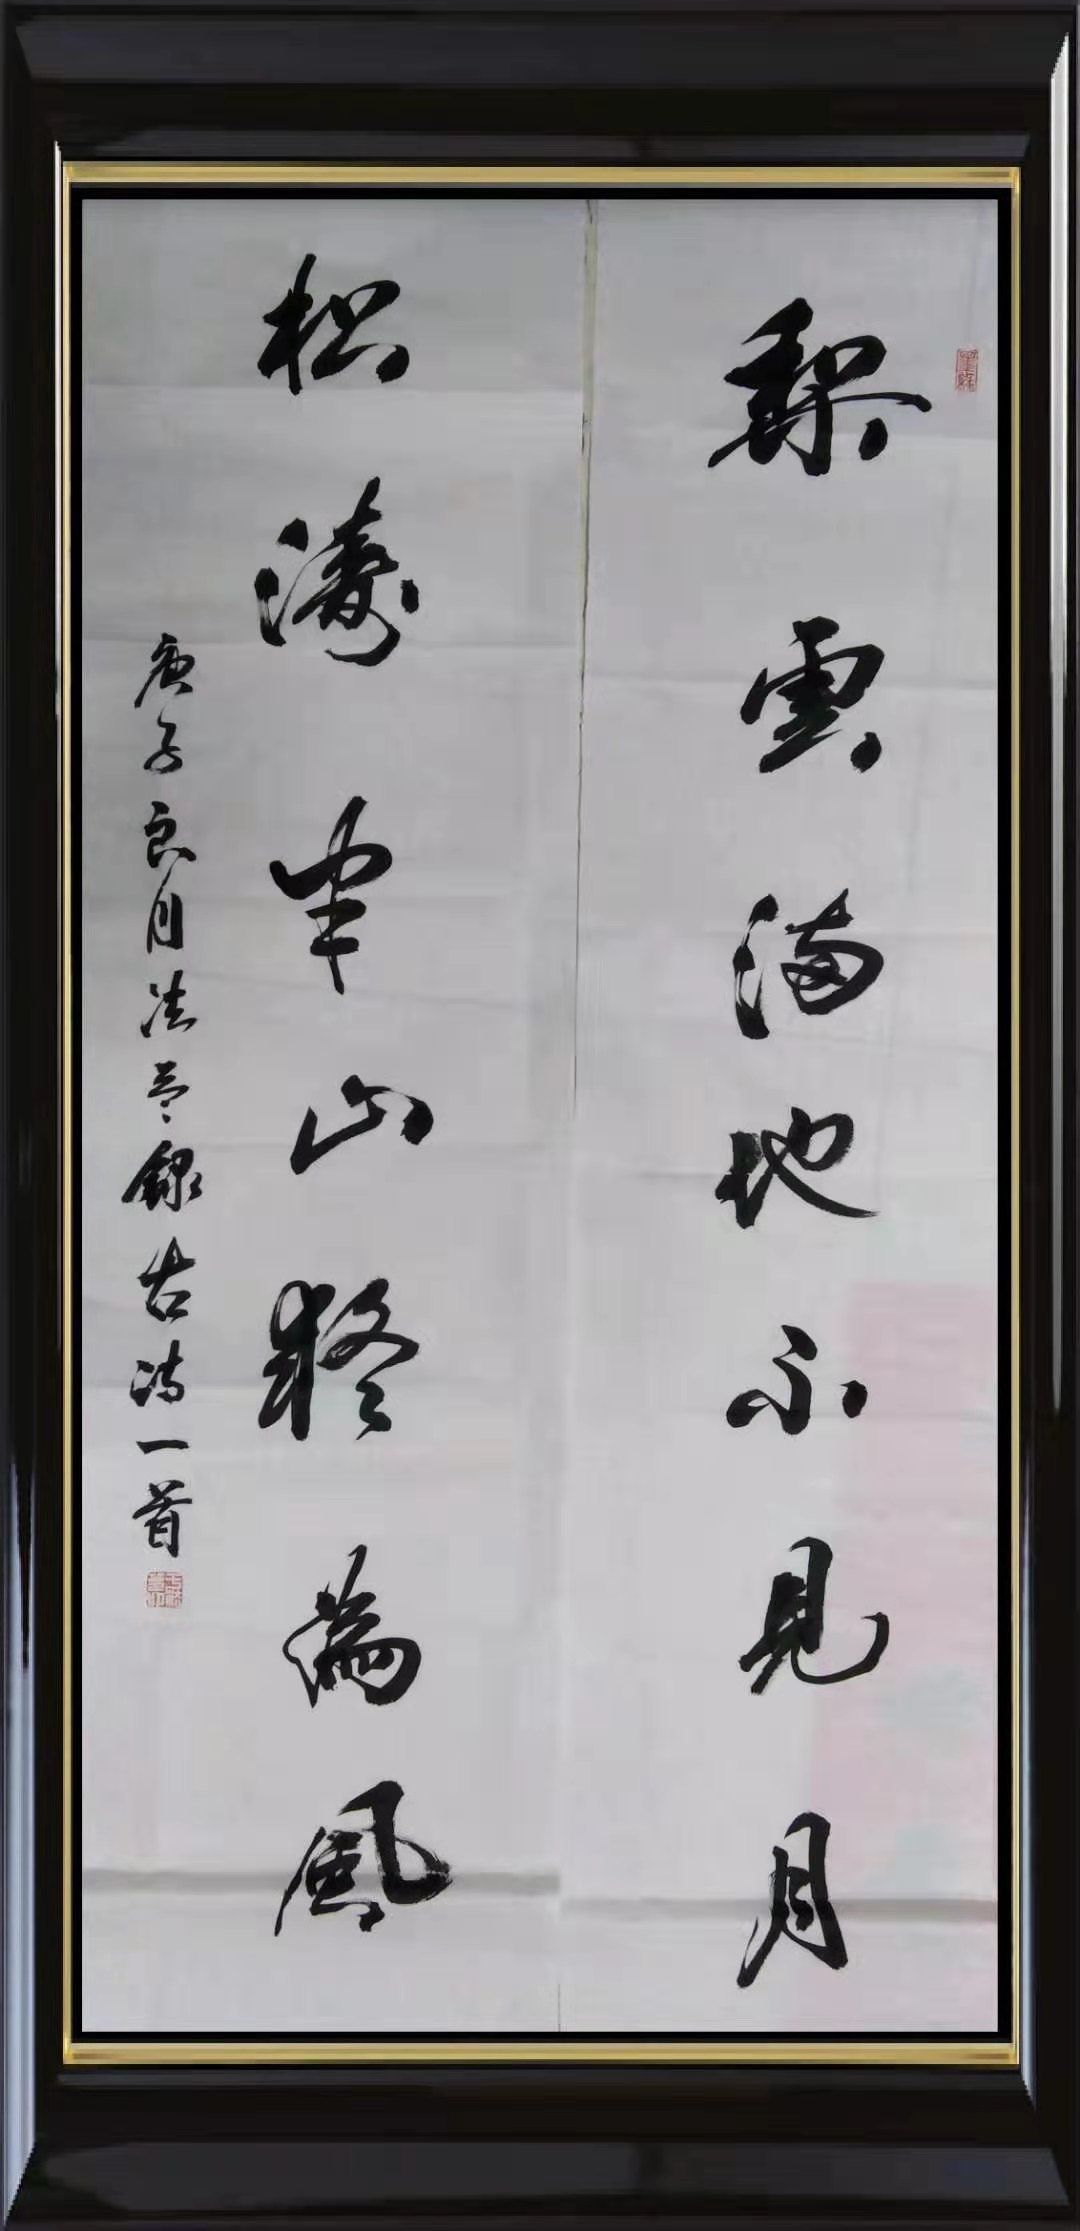 梨雲满地不見月
松濤半山疑為風
庚子良月法芝錄古诗一首